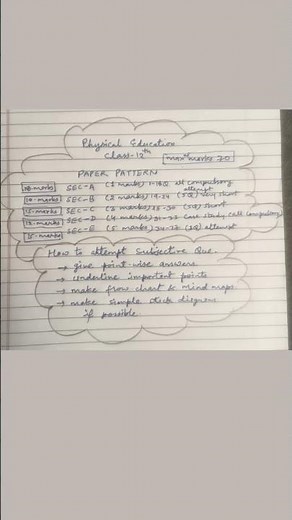 Physical Education
Class-12th
max m marks 70
PAPER PATTERN
18 marks SEC-A (1 marks) 1-18Q all compulsory
attempt
10 marks SEC-B (2 marks) 19-24 (5Q) very short
15 marks SEC-C (3 marks) 25-30 (5Q) short
12 marks SEC-D (4 marks) 31-33 Case Study (all compulsory)
15 marks SEC-E (5 marks) 34-37 (3Q) attempt
How to attempt Subjective Que.
→ give point-wise answers.
→ underline important points
→ make flow chart & mind maps
→ make simple stick diagrams
if possible